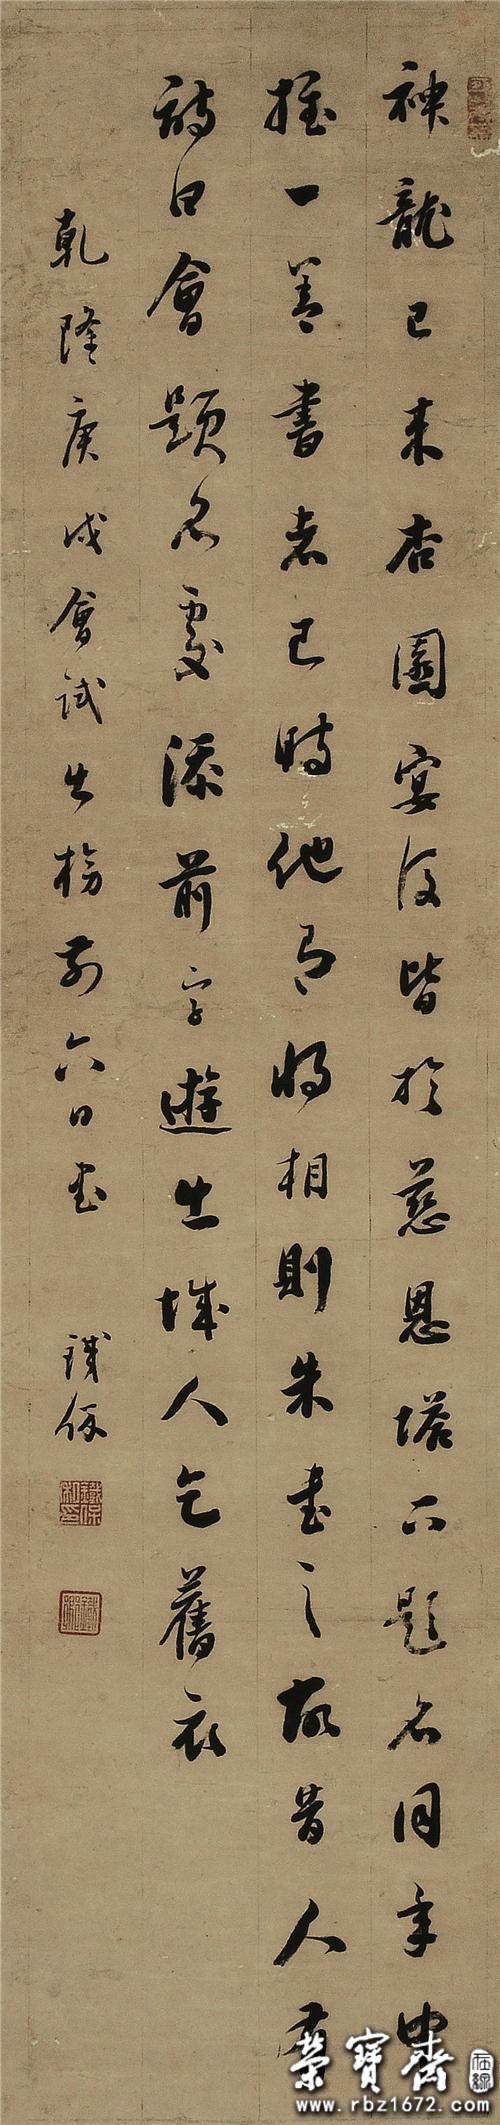 神龍已來杏園宴後皆於慈恩塔下題名同年中
推一善書者已時他有將相則朱書之故昔人有
詩曰會題名處添前字遊出城人乞舊衣
乾隆庚戌會試出榜前六日書
鐵保
榮寶齋
在線
www.rbz1672.com